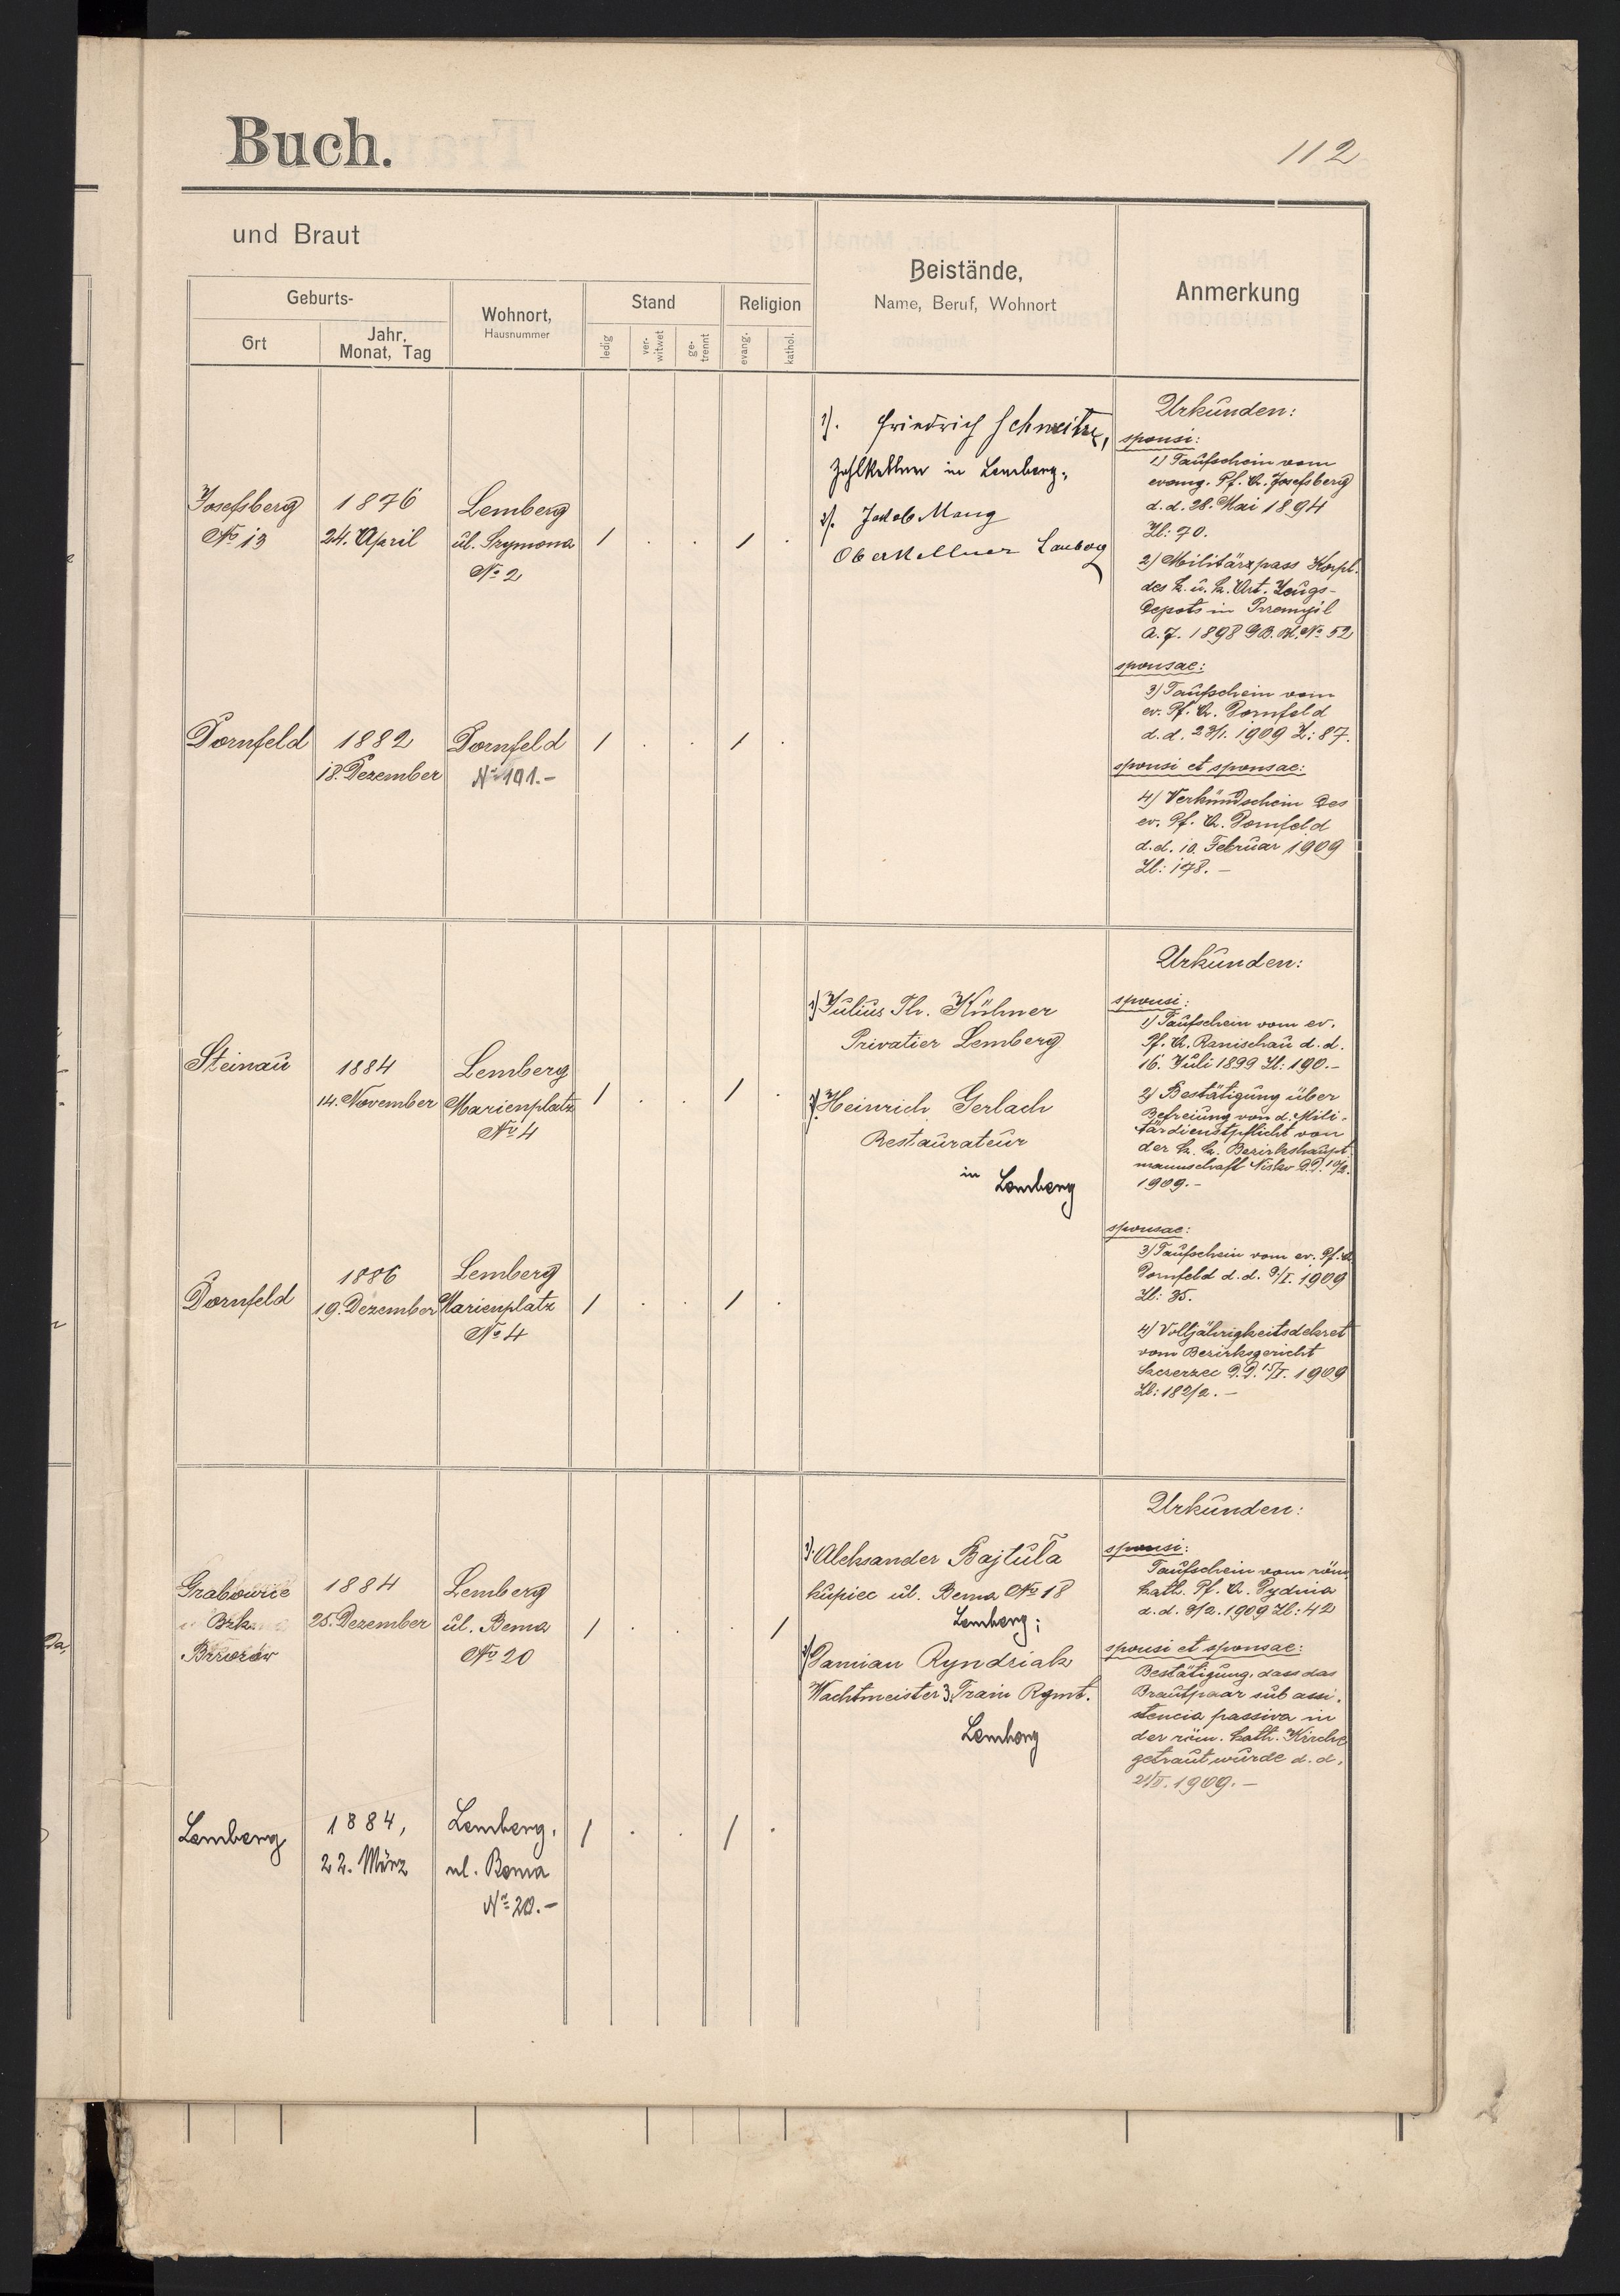 Buch.
112
und Braut
Geburts-
Ort
Jahr, Monat, Tag
Wohnort,
Hausnummer
Stand
ledig
ver-witwet
ge-trennt
Religion
evang.
kathol.
Beistände,
Name, Beruf, Wohnort
Anmerkung
Josefsberg
No 13
1876
24. April
Lemberg
ul. Szymona
No 2
1 . . 1 .
1). Friedrich Schweitzer,
Zahlkellner in Lemberg;
2). Jakob Mang
Oberkellner Lemberg
Urkunden:
sponsi:
1) Taufschein vom
evang. Pf. A. Josefsberg
d. d. 28. Mai 1894
Zl: 70.
2) Militärpass Korpl.
des k. u. k. Art. Zeugs-
Depots in Przemyśl
A. J. 1898 GB. Bl. No 52
sponsae:
3) Taufschein vom
ev. Pf. A. Dornfeld
d. d. 23/1. 1909 Z: 87.
sponsi et sponsae:
4) Verkündschein des
ev. Pf. A. Dornfeld
d. d. 10. Februar 1909
Zl: 178. –
Dornfeld
1882
18. Dezember
Dornfeld
No 101. –
1 . . 1 .
Steinau
1884
14. November
Lemberg
Marienplatz
No 4
1 . . 1 .
1) Julius Th. Kühner
Privatier Lemberg
2). Heinrich Gerlach
Restaurateur
in Lemberg
Urkunden:
sponsi:
1) Taufschein vom ev.
Pf. A. Ranischau d. d.
16. Juli 1899 Zl: 190. –
2) Bestätigung über
Befreiung von d. Mili-
tärdienstpflicht von
der k. k. Bezirkshaupt-
mannschaft Nisko d. d. 10/2.
1909. –
sponsae:
3) Taufschein vom ev. Pf. A.
Dornfeld d. d. 9/I. 1909
Zl: 35.
4) Volljährigkeitsdekret
vom Bezirksgericht
Szczerzec d. d. 15/I. 1909
Zl: 182/2. –
Dornfeld
1886
19. Dezember
Lemberg
Marienplatz
No 4
1 . . 1 .
Grabowice
Brzozów
1884
25. Dezember
Lemberg
ul. Bema
No 20
1 . . . 1
1). Aleksander Bajtuła
kupiec ul. Bema No 18
Lemberg;
2) Damian Ryndziak
Wachtmeister 3. Train Rgmt.
Lemberg
Urkunden:
sponsi:
Taufschein vom röm.
kath. Pf. A. Dydnia
d. d. 8/2. 1909 Zl: 42
sponsi et sponsae:
Bestätigung, dass das
Brautpaar sub assi-
stencia passiva in
der röm. kath. Kirche
getraut wurde d. d.
21/II. 1909. –
Lemberg
1884,
22. März
Lemberg,
ul. Bema
No 20. –
1 . . 1 .